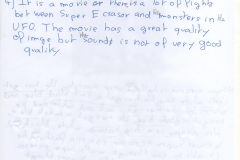 4) It is a movie or there is a lot of fights
between Super Ecsasor and the monsters in the
UFO. The movie has a great quality
of image but the sounds is not of very good
quality